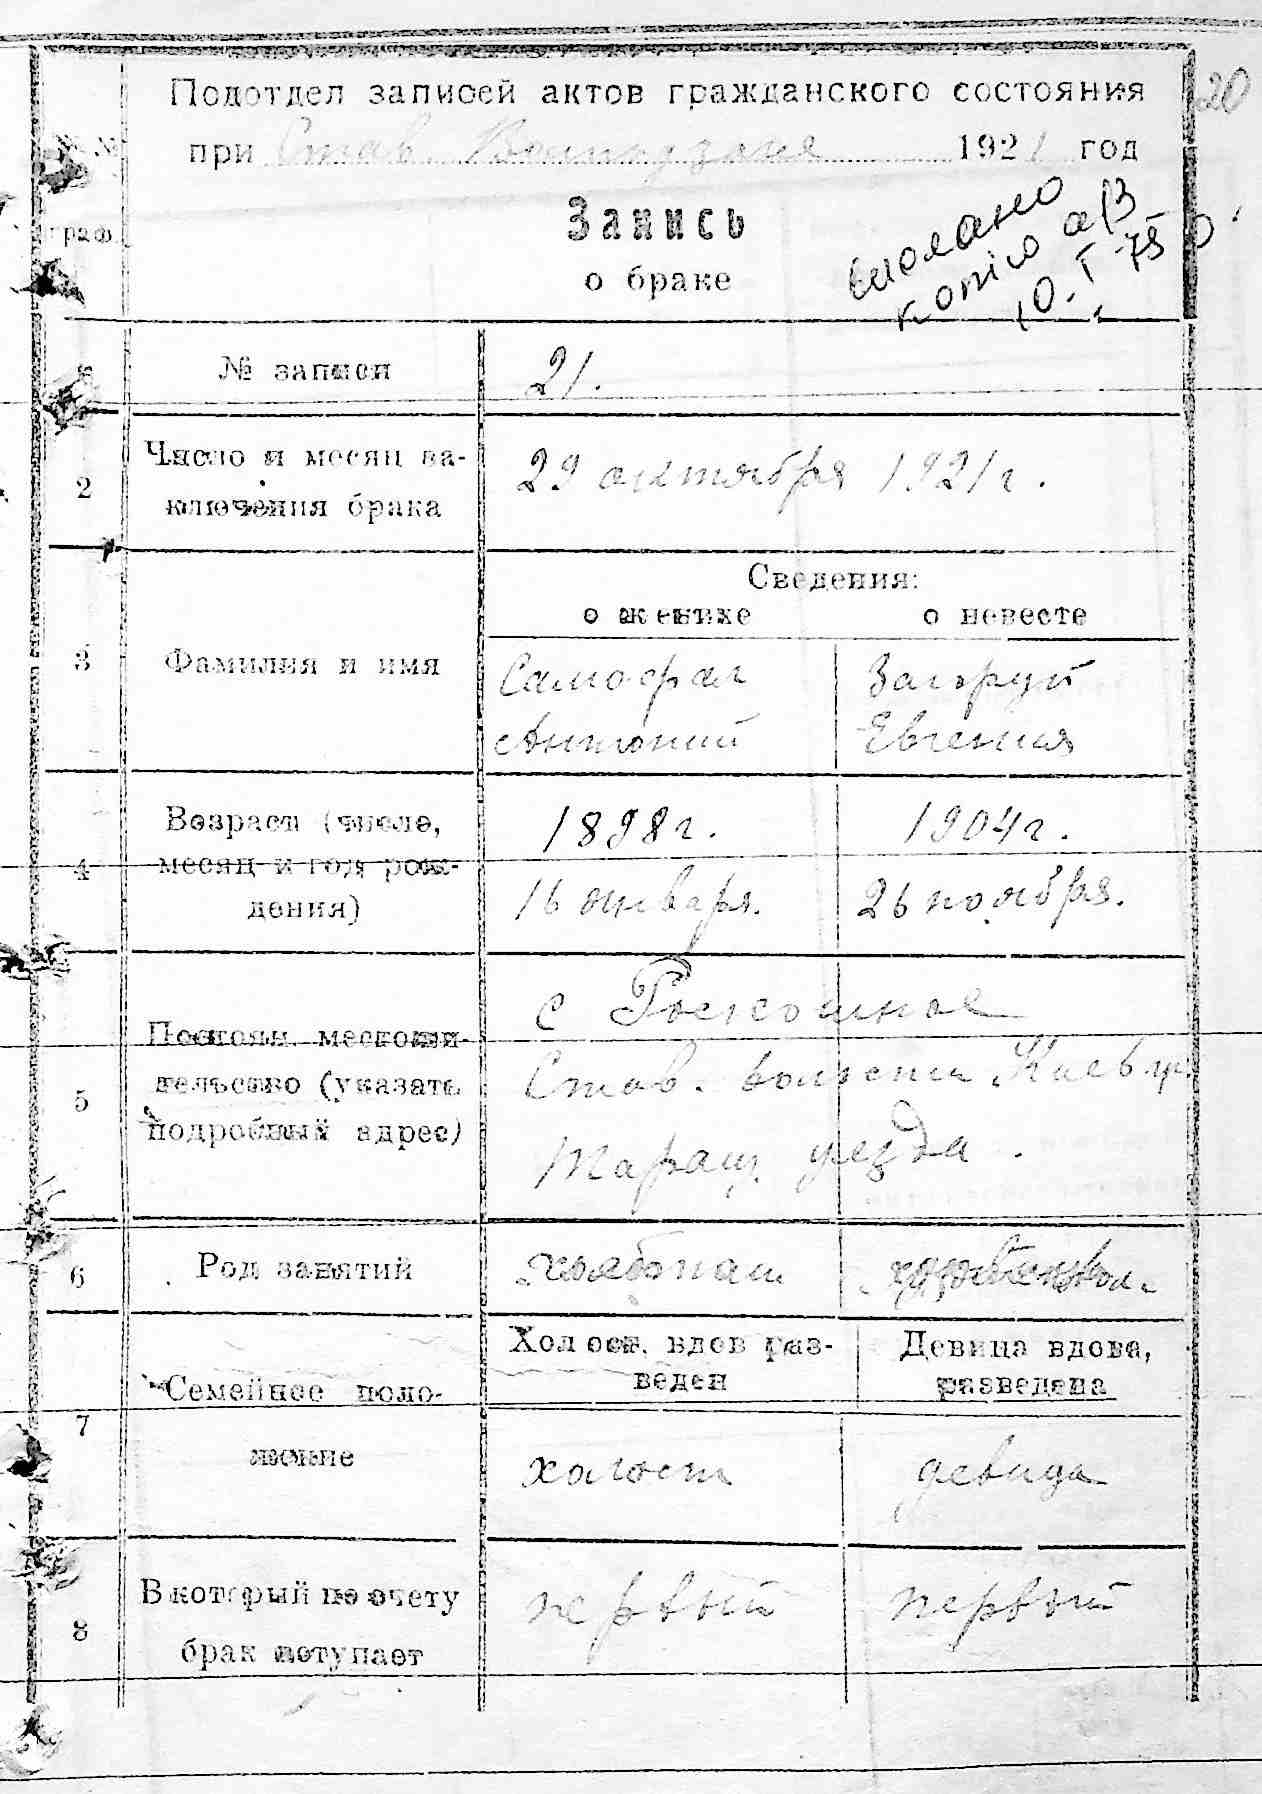 Подотдел записей актов гражданского состояния
20
при Став. 1921 год
№№
граф.
Запись
о браке
копію
10. I - 75
№ записи
21.
2
Число и месяц за-
ключения брака
29 октября 1921 г.
Сведения:
о женихе
о невесте
3
Фамилия и имя
Самофал
Антоний
Загоруй
Евгения
4
Возраст (число,
месяц и год рож-
дения)
1898 г.
16 января.
1904 г.
26 ноября.
5
Постоян. местожи-
тельство (указать
подробный адрес)
с Роскошное
Став. волости Киев. гу.
Таращ. уезда.
6
Род занятий
хлебопаш
7
Семейное поло-
жение
Холост. вдов раз-
веден
Девица вдова,
разведена
холост
девица
8
В который по счету
брак вступает
первый
первый